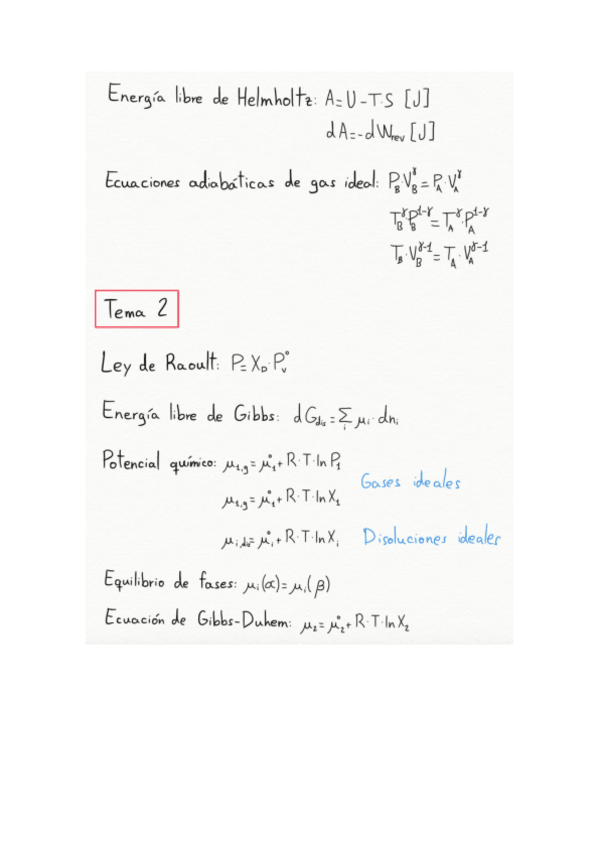 Energía libre de Helmholtz: A=U-T·S [J]
dA=-dWrev [J]
Ecuaciones adiabáticas de gas ideal: P_B·V_B^γ=P_A·V_A^γ
T_B^γ·P_B^1-γ=T_A^γ·P_A^1-γ
T_B·V_B^γ-1=T_A·V_A^γ-1
Tema 2
Ley de Raoult: P=X_D·P_v°
Energía libre de Gibbs: dG_dis=Σ_i μ_i·dn_i
Potencial químico: μ_1,g=μ_1°+R·T·lnP_1
Gases ideales
μ_1,g=μ_1°+R·T·lnX_1
μ_i,dis=μ_i°+R·T·lnX_i Disoluciones ideales
Equilibrio de fases: μ_i(α)=μ_i(β)
Ecuación de Gibbs-Duhem: μ_2=μ_2°+R·T·lnX_2